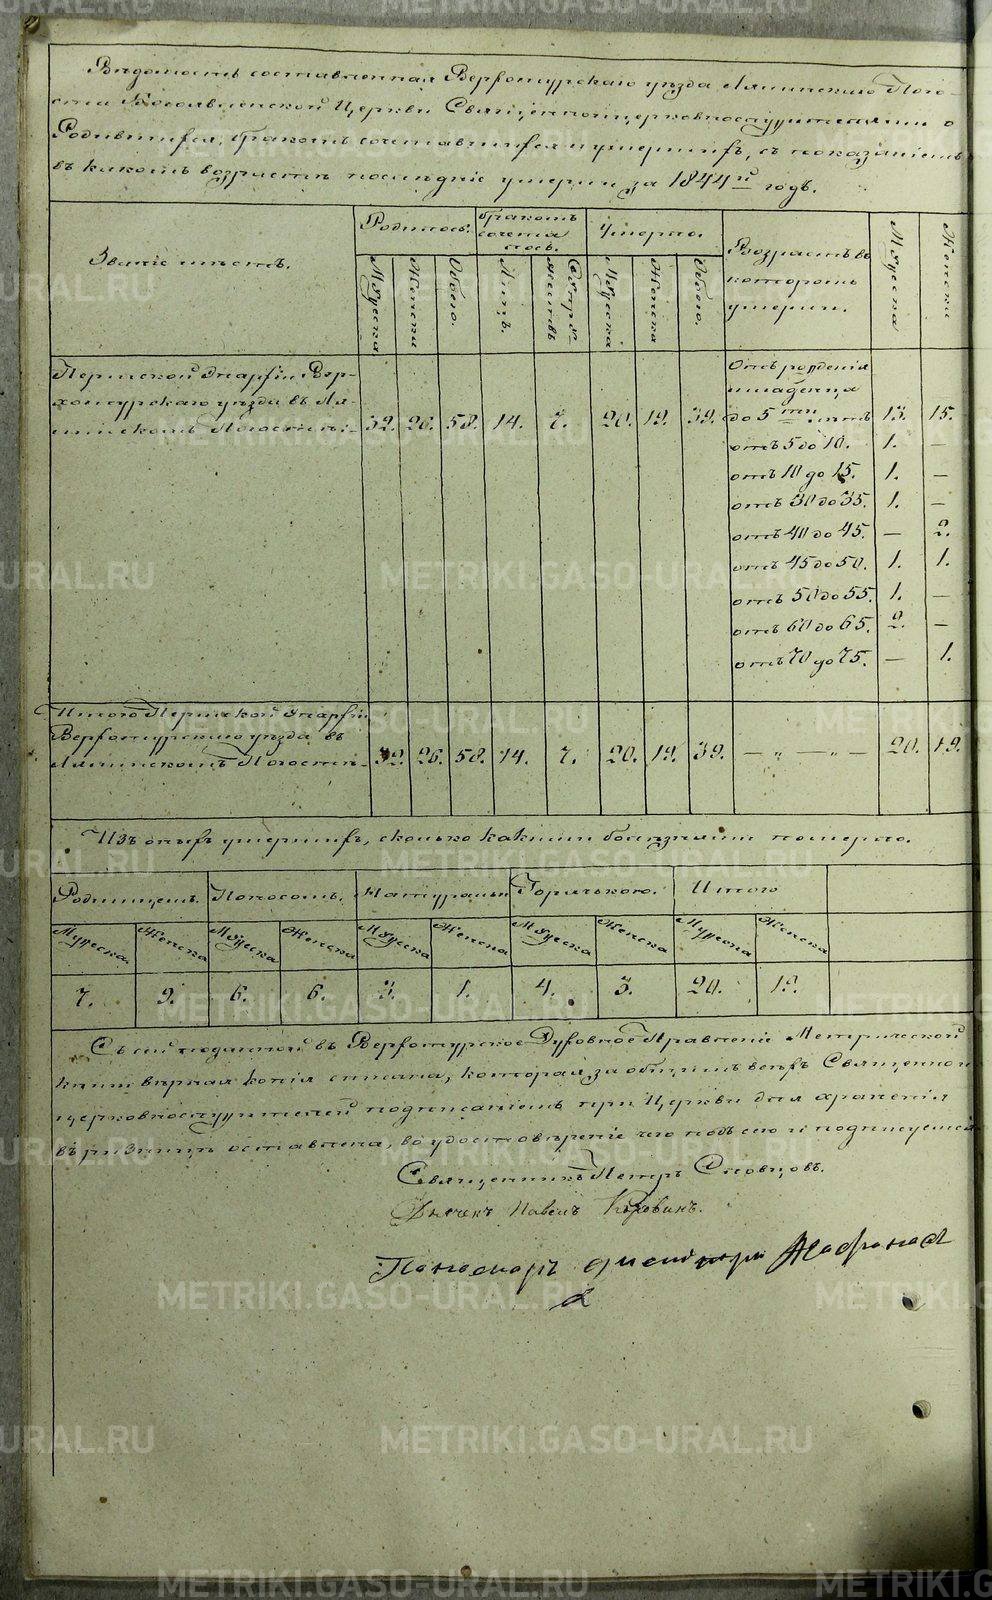 Ведомость составленная Верхотурскаго уѣзда Лялинскаго Пого-
ста Богоявленской Церкви Священноцерковнослужителями о
Родившихся, бракомъ сочетавшихся и умершихъ, съ показаніемъ
въ какомъ возрастѣ послѣдніе умерли за 1844й годъ.
Званіе мѣстъ.
Родилось.
Бракомъ
сочета
лось.
Умерло.
Возрастъ въ
которомъ
умерли.
Мужеска
Женска
Мужеска
Женска
Обоего.
Лицъ.
Супру-
жествъ
Мужеска
Женска
Обоего.
Пермской Епархіи Вер-
хотурскаго уѣзда въ Ля-
линскомъ Погостѣ:- 32. 26. 58. 14. 7. 20. 19. 39.
Отъ рожденія
младенца
до 5ти лѣтъ 13. 15.
отъ 5 до 10. 1. —
отъ 10 до 15. 1. —
отъ 30 до 35. 1. —
отъ 40 до 45. — 2.
отъ 45 до 50. 1. 1.
отъ 50 до 55. 1. —
отъ 60 до 65. 2. —
отъ 70 до 75. — 1.
Итого Пермской Епархіи
Верхотурскаго уѣзда въ
Лялинскомъ Погостѣ- 32. 26. 58. 14. 7. 20. 19. 39. — „ — „ — 20. 19.
Изъ оныхъ умершихъ, сколько какими болѣзнями померло.
Родимцемъ. Поносомъ. Натурально Горячкою. Итого
Мужеска Женска Мужеска Женска Мужеска Женска Мужеска Женска Мужеска Женска
7. 9. 6. 6. 3. 1. 4. 3. 20. 19.
Съ сей поданной въ Верхотурское Духовное Правленіе Метрической
книги вѣрная копія списана, которая за общимъ всѣхъ Священно
церковнослужителей подписаніемъ при Церкви для храненія
въ ризницѣ оставлена, во удостовѣреніе чего подъ сею и подписуемся
Священникъ Петръ Словцовъ.
Дьячекъ Павелъ Коровинъ.
Пономарь
METRIKI.GASO-URAL.RU